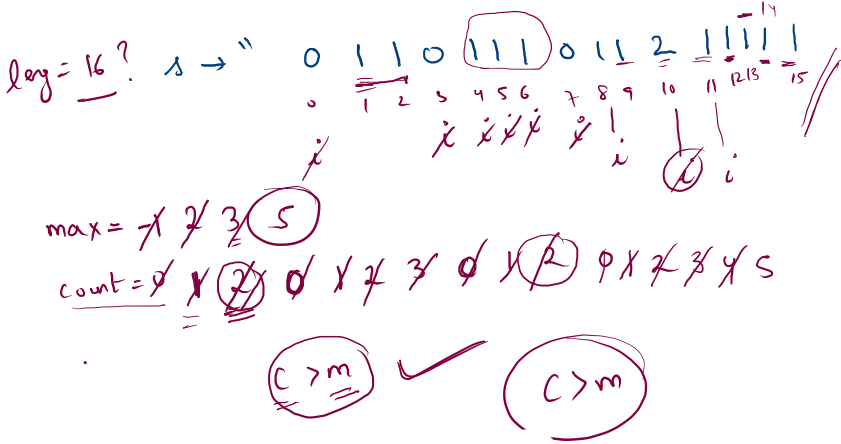 14
leg = 16 ? s → " 0 1 1 0 1 1 1 0 1 1 2 1 1 1 1 1
0 1 2 3 4 5 6 7 8 9 10 11 12 13 15
i i i i i i i i
i
max = -1 2 3 5
count = 0 1 2 0 1 2 3 0 1 2 0 1 2 3 4 5
c > m ✓ c > m